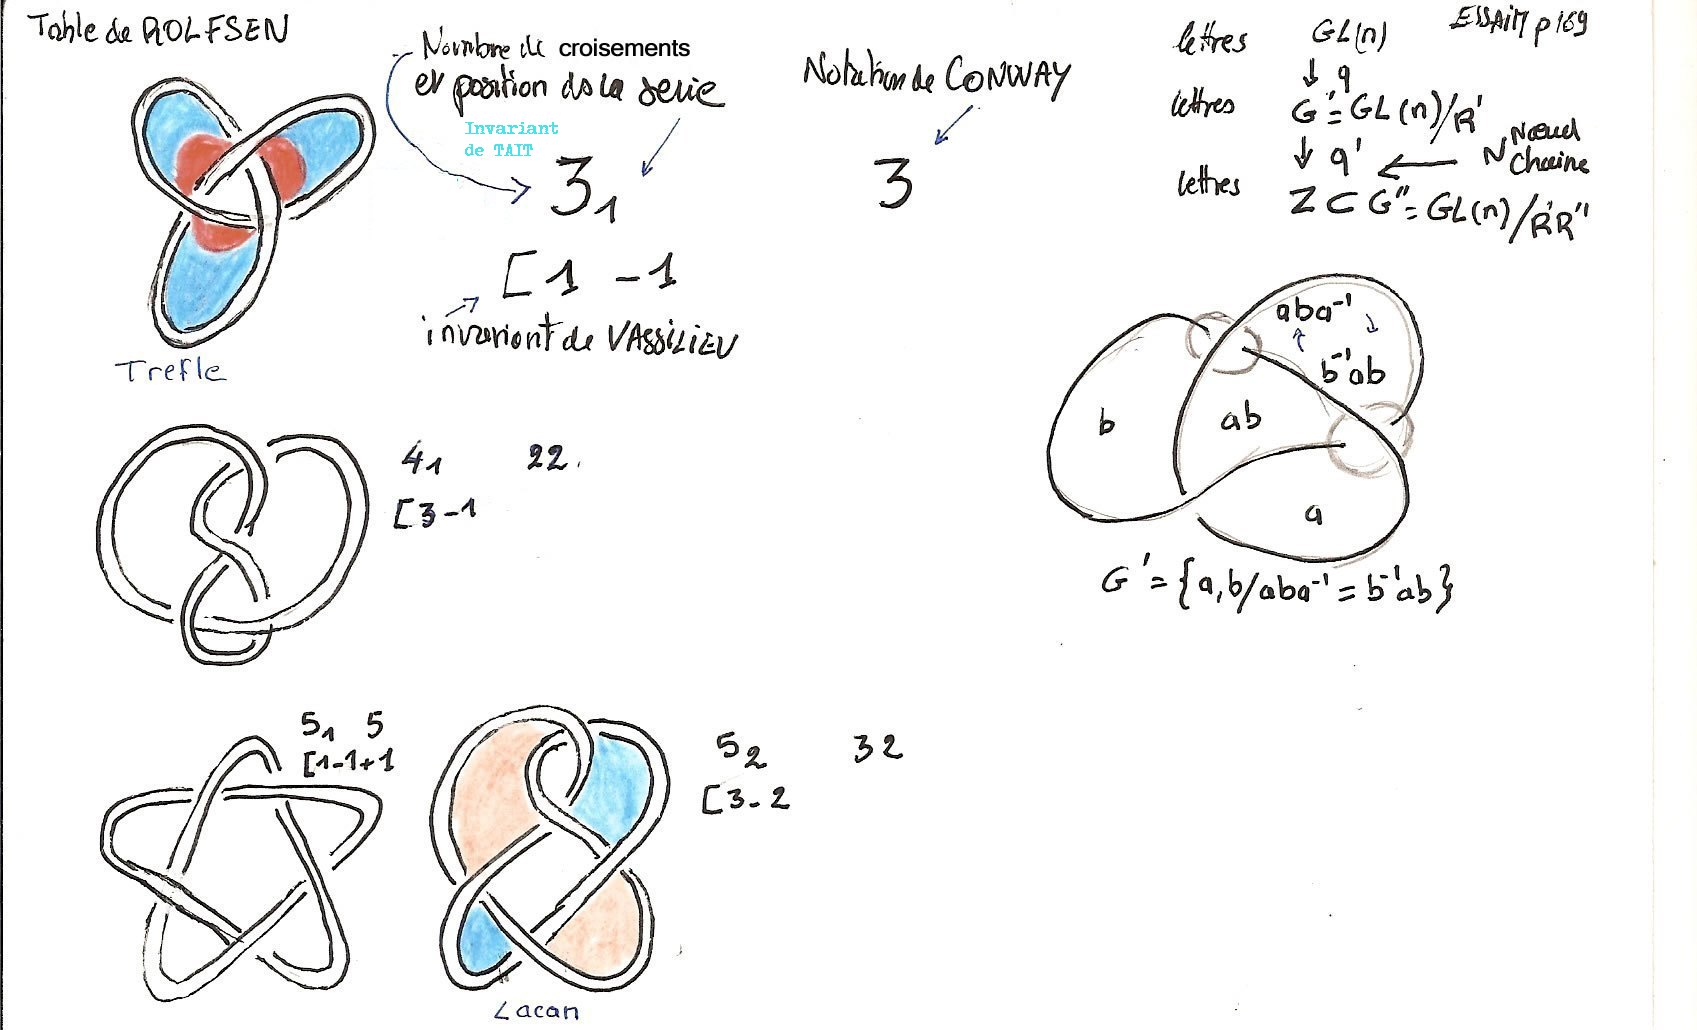 Table de ROLFSEN
Nombre de croisements
et position ds la serie
Invariant
de TAIT
3₁
[1 -1
invariant de VASSILIEV
Notation de CONWAY
3
ESSAIM p169
lettres GL(n)
↓ q
lettres G'=GL(n)/R'
↓ q' ← N Nœud Chaine
lettres Z ⊂ G''=GL(n)/R'R''
Trefle
4₁ 22.
[3-1
aba⁻¹
b⁻¹ab
b
ab
a
G'={a,b/aba⁻¹=b⁻¹ab}
5₁ 5
[1-1+1
5₂ 32
[3-2
Lacan